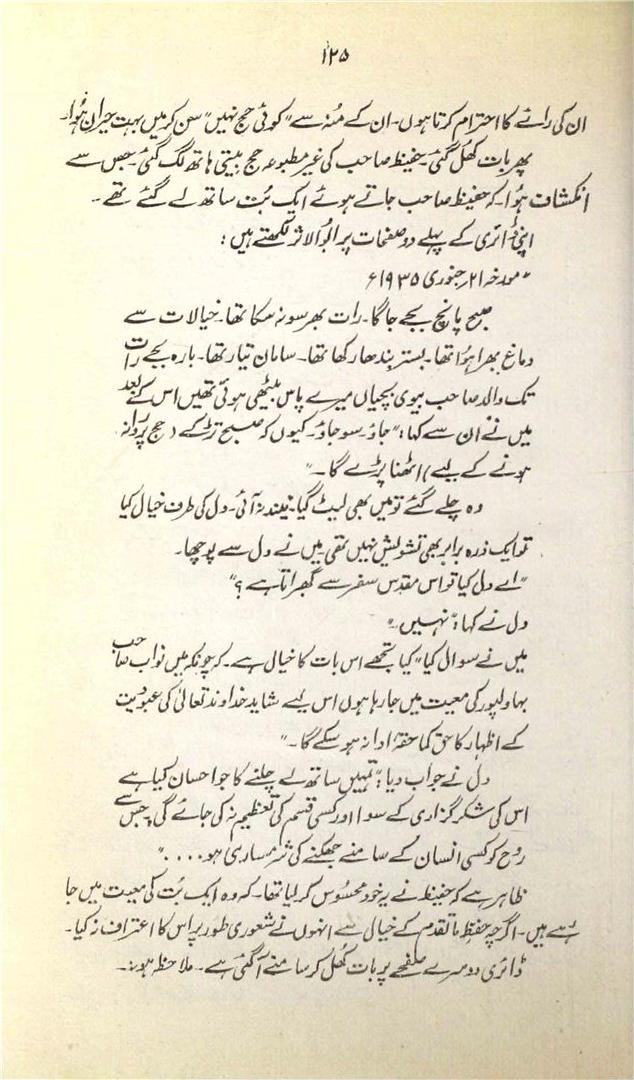 ۱۲۵
ان کی رائے کا احترام کرتا ہوں۔ ان کے منہ سے "کوئی حج نہیں" سن کر میں بہت حیران ہُوا۔
پھر بات کھُل گئی۔ حفیظ صاحب کی غیر مطبوعہ حج بیتی ہاتھ لگ گئی۔ جس سے
انکشاف ہُوا۔ کہ حفیظ صاحب جاتے ہوئے ایک بُت ساتھ لے گئے تھے۔
اپنی ڈائری کے پہلے دو صفحات پر ابُو الاثر لکھتے ہیں :
"مورخہ ۲۱ر جنوری ۱۹۳۵ء
صبح پانچ بجے جاگا۔ رات بھر سو نہ سکا تھا۔ خیالات سے
دماغ بھرا ہُوا تھا۔ بستر بندھا رکھا تھا۔ سامان تیار تھا۔ بارہ بجے رات
تک والد صاحب بیوی بچیاں میرے پاس بیٹھی ہوئی تھیں اس کے بعد
میں نے ان سے کہا: "جاؤ۔ سو جاؤ۔ کیوں کہ صبح تڑکے (حج پر روانہ
ہونے کے لیے) اٹھنا پڑے گا۔"
وہ چلے گئے تو میں بھی لیٹ گیا۔ نیند نہ آئی۔ دل کی طرف خیال کیا
تو ایک ذرہ برابر بھی تشویش نہیں تھی میں نے دل سے پوچھا۔
"اے دل کیا تو اس مقدس سفر سے گھبراتا ہے؟"
دل نے کہا: "نہیں"
میں نے سوال کیا "کیا تجھے اس بات کا خیال ہے۔ کہ چونکہ میں نواب صاحب
بہاولپور کی معیت میں جا رہا ہوں اس لیے شاید خداوند تعالیٰ کی عبودیت
کے اظہار کا حق کما حقہٗ ادا نہ ہو سکے گا۔"
دل نے جواب دیا: "تمہیں ساتھ لے چلنے کا جو احسان کیا ہے
اس کی شکر گزاری کے سوا اور کسی قسم کی تعظیم نہ کی جائے گی جس سے
روح کو کسی انسان کے سامنے جھکنے کی شرمساری ہو . . . ."
ظاہر ہے کہ حفیظ نے یہ خود محسوس کر لیا تھا۔ کہ وہ ایک بُت کی معیت میں جا
رہے ہیں۔ اگرچہ حفظِ ماتقدم کے خیال سے انہوں نے شعوری طور پر اس کا اعتراف نہ کیا۔
ڈائری دوسرے صفحے پر بات کھُل کر سامنے آ گئی ہے۔ ملاحظہ ہو:۔